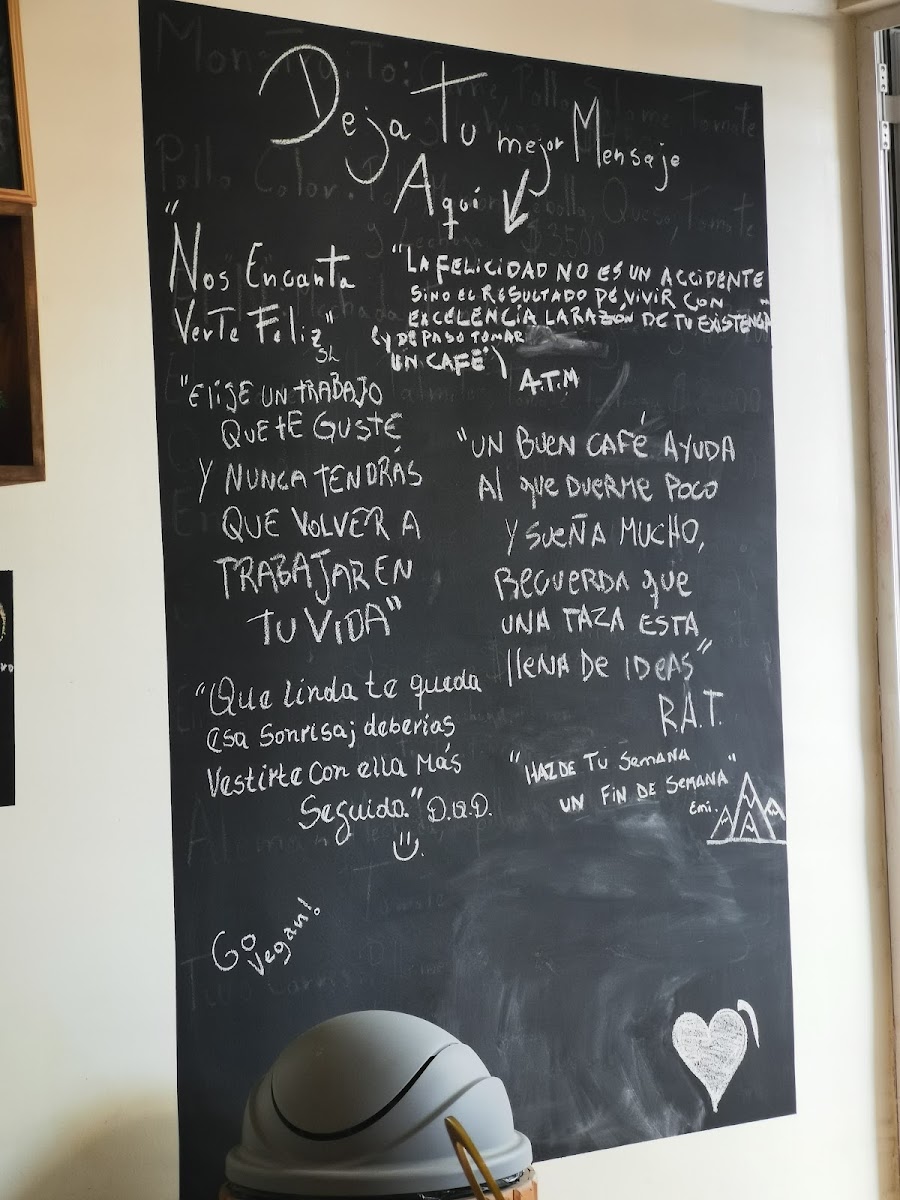 Deja Tu mejor Mensaje
Aquí
"Nos Encanta
Verte Feliz"
SL
"LA FELICIDAD NO ES UN ACCIDENTE
SINO EL RESULTADO DE VIVIR CON
EXCELENCIA LA RAZON DE TU EXISTENCIA"
(Y DE PASO TOMAR
UN CAFÉ")
A.T.M
"ELIJE UN TRABAJO
QUE TE GUSTE
Y NUNCA TENDRÁS
QUE VOLVER A
TRABAJAR EN
TU VIDA"
"UN BUEN CAFÉ AYUDA
Al que DUERME POCO
Y SUEÑA MUCHO,
RECUERDA que
UNA TAZA ESTA
llENA DE IDEAS"
R.A.T.
"Que linda te queda
esa Sonrisa; deberías
Vestirte con ella Más
Seguido." D.Q.D.
"HAZ DE TU SEMANA
UN FIN DE SEMANA"
Emi.
Go
Vegan!
$3500